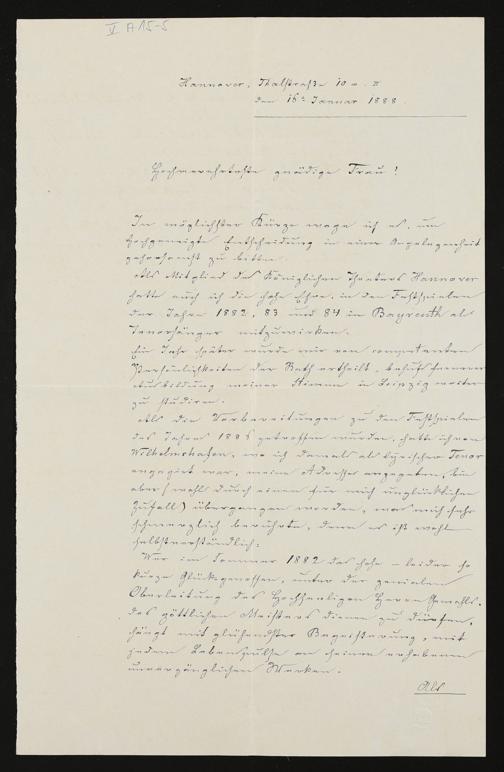 V A 15-5
Hannover, Thalstraße 10 a. II
den 16t Januar 1888.
Hochverehrteste gnädige Frau!
In möglichster Kürze wage ich es, um
hochgeneigte Entscheidung in einer Angelegenheit
gehorsamst zu bitten.
Als Mitglied des Königlichen Theaters Hannover
hatte auch ich die hohe Ehre, in den Festspielen
der Jahre 1882, 83 und 84 in Bayreuth als
Tenorsänger mitzuwirken.
Ein Jahr später wurde mir von competenten
Persönlichkeiten der Rath ertheilt, behufs fernerer
Ausbildung meiner Stimme in Leipzig weiter
zu studiren.
Als die Vorbereitungen zu den Festspielen
des Jahres 1886 getroffen wurden, hatte ich von
Wilhelmshafen, wo ich damals als lyrischer Tenor
engagirt war, meine Adresse angegeben, bin
aber (wohl durch einen für mich unglücklichen
Zufall) übergangen worden, was mich sehr
schmerzlich berührte, denn es ist wohl
selbstverständlich:
Wer im Sommer 1882 das hohe – leider so
kurze Glück genossen, unter der genialen
Oberleitung des Hochseeligen Herrn Gemahls,
des göttlichen Meisters dienen zu dürfen,
hängt mit glühendster Begeisterung, mit
jedem Lebenspulse an seinen erhabenen
unvergänglichen Werken.
Als